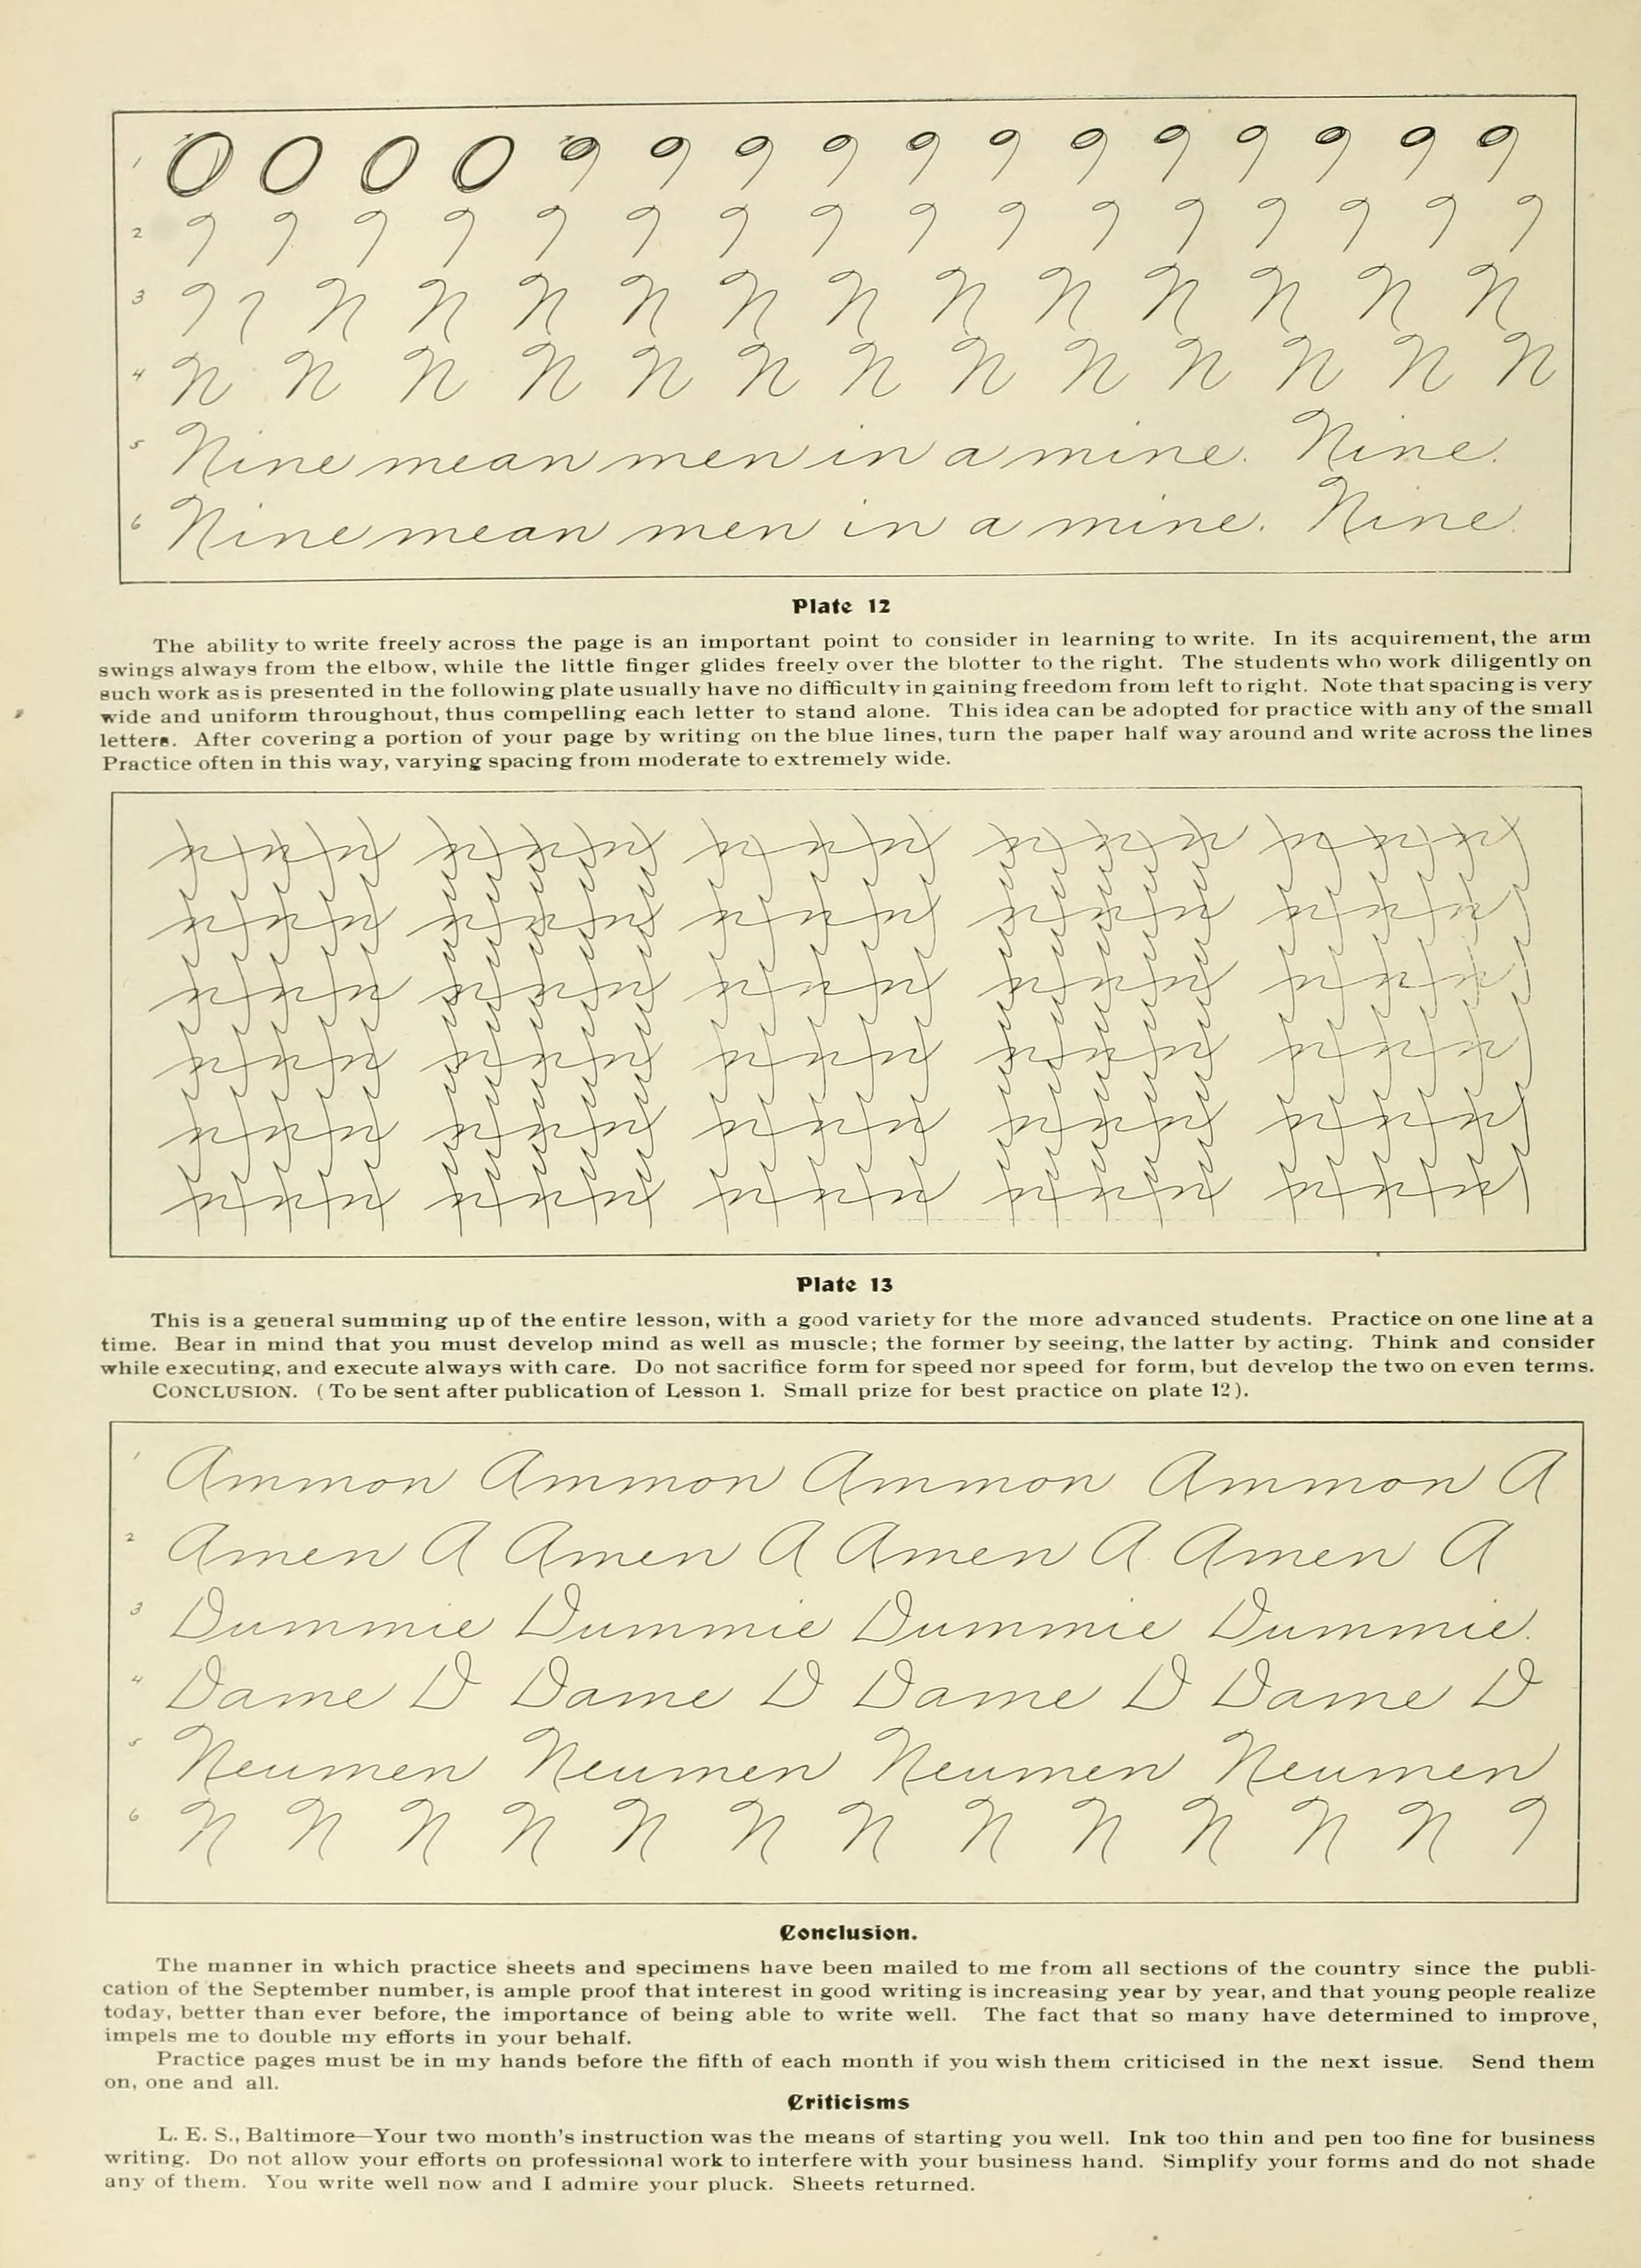 1 O O O O 9 9 9 9 9 9 9 9 9 9 9 9
2 9 9 9 9 9 9 9 9 9 9 9 9 9 9 9 9
3 9 9 N N N N N N N N N N N N
4 N N N N N N N N N N N N N
5 Nine mean men in a mine. Nine.
6 Nine mean men in a mine. Nine.
Plate 12
The ability to write freely across the page is an important point to consider in learning to write. In its acquirement, the arm
swings always from the elbow, while the little finger glides freely over the blotter to the right. The students who work diligently on
such work as is presented in the following plate usually have no difficulty in gaining freedom from left to right. Note that spacing is very
wide and uniform throughout, thus compelling each letter to stand alone. This idea can be adopted for practice with any of the small
letters. After covering a portion of your page by writing on the blue lines, turn the paper half way around and write across the lines
Practice often in this way, varying spacing from moderate to extremely wide.
Plate 13
This is a general summing up of the entire lesson, with a good variety for the more advanced students. Practice on one line at a
time. Bear in mind that you must develop mind as well as muscle; the former by seeing, the latter by acting. Think and consider
while executing, and execute always with care. Do not sacrifice form for speed nor speed for form, but develop the two on even terms.
CONCLUSION. (To be sent after publication of Lesson 1. Small prize for best practice on plate 12).
1 Ammon Ammon Ammon Ammon A
2 Amen A Amen A Amen A Amen A
3 Dummie Dummie Dummie Dummie.
4 Dame D Dame D Dame D Dame D
5 Neumen Neumen Neumen Neumen
6 N N N N N N N N N N N N 9
Conclusion.
The manner in which practice sheets and specimens have been mailed to me from all sections of the country since the publi-
cation of the September number, is ample proof that interest in good writing is increasing year by year, and that young people realize
today, better than ever before, the importance of being able to write well. The fact that so many have determined to improve,
impels me to double my efforts in your behalf.
Practice pages must be in my hands before the fifth of each month if you wish them criticised in the next issue. Send them
on, one and all.
Criticisms
L. E. S., Baltimore—Your two month's instruction was the means of starting you well. Ink too thin and pen too fine for business
writing. Do not allow your efforts on professional work to interfere with your business hand. Simplify your forms and do not shade
any of them. You write well now and I admire your pluck. Sheets returned.